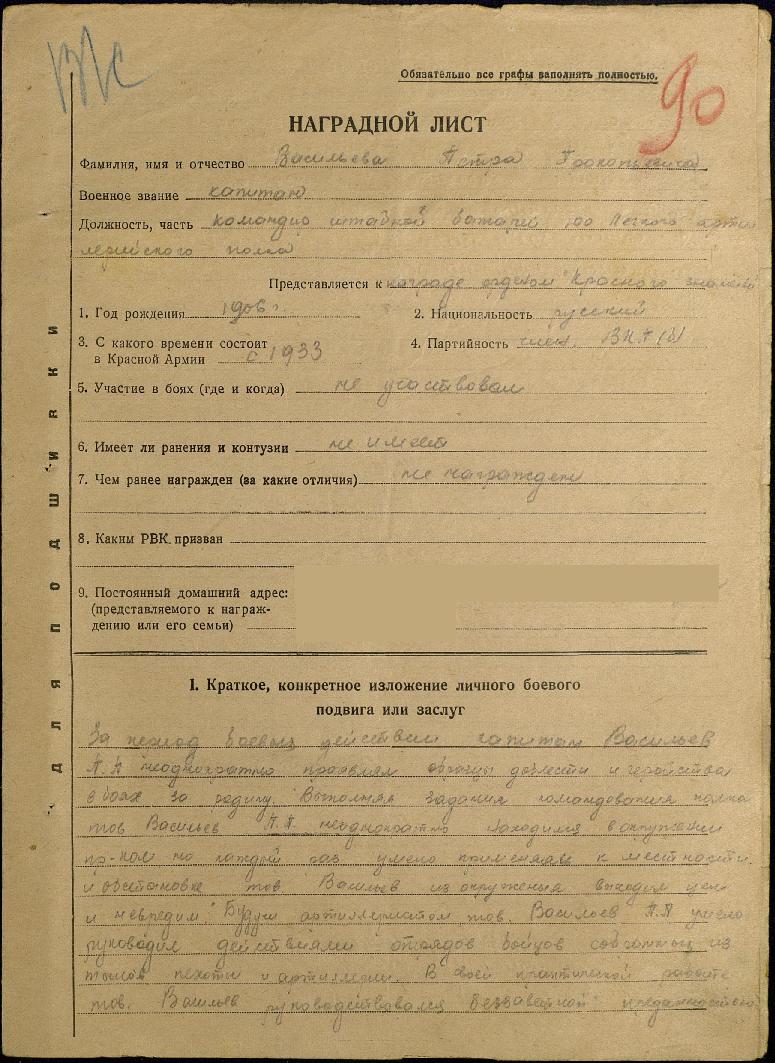 РПС
Обязательно все графы ваполнять полностью.
90
НАГРАДНОЙ ЛИСТ
Фамилия, имя и отчество Васильева Петра Прокопьевича
Военное звание капитан
Должность, часть командир штабной батареи 100 Легкого арти
лерийского полка
Представляется к награде орденом "Красного знамени
1. Год рождения 1906 г. 2. Национальность русский
3. С какого времени состоит в Красной Армии с 1933 4. Партийность член ВКП(б)
5. Участие в боях (где и когда) не участвовал
6. Имеет ли ранения и контузии не имеет
7. Чем ранее награжден (за какие отличия) не награжден
8. Каким РВК призван
9. Постоянный домашний адрес:
(представляемого к награж-
дению или его семьи)
ДЛЯ ПОДШИВКИ
I. Краткое, конкретное изложение личного боевого
подвига или заслуг
За период боевых действий капитан Васильев
П.П неоднократно проявлял образцы доблести и геройства
в боях за родину. Выполняя задания командования полка
тов Васильев П.П. неоднократно находился в окружении
пр-ком но каждый раз умело применяясь к местности
и обстановке тов. Васильев из окружения выходил цел
и невредим. Будучи артиллеристом тов. Васильев П.П умело
руководил действиями отрядов бойцов собранных из
тылов пехоты и артиллерии. В своей практической работе
тов. Васильев руководствовался беззаветной преданностью